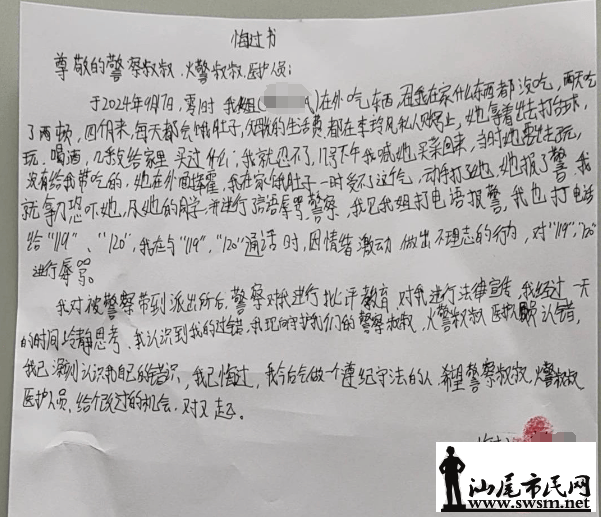 悔过书
尊敬的警察叔叔、火警叔叔、医护人员：
于2024年4月7日，零时 我姐( )在外吃东西，但我在家什么东西都没吃，两天吃
了两顿，回们来，每天都会饿肚子，父母的生活费都在李玲凤私人账号上，她拿着出去打台球，
玩、喝酒，几乎没给家里买过什么；我就忍不了，7号下午我喊她买菜回来，当时她要出去玩，
没有给我带吃的，她在外面挥霍，我在家饿肚子一时受不了这气，动手打了她，她报了警，我
就拿刀恐吓她，及她的同学，并进行言语辱骂警察，我见我姐打电话报警，我也打电话
给"119"、"120"，我在与"119"、"120"通话时，因情绪激动 做出不理志的行为，对"119"，"120"
进行辱骂。
我对被警察带到派出所后，警察对我进行批评教育，对我进行法律宣传，我经过一天
的时间冷静思考、我认识到我的过错，我现向守护我们的警察叔叔，火警叔叔 医护人员 认错，
我已深刻认识我自己的错识，我已悔过，我今后会做一个遵纪守法的人，希望警察叔叔，火警叔叔
医护人员，给个改过的机会，对又起。
汕尾市民网
www.swsm.net